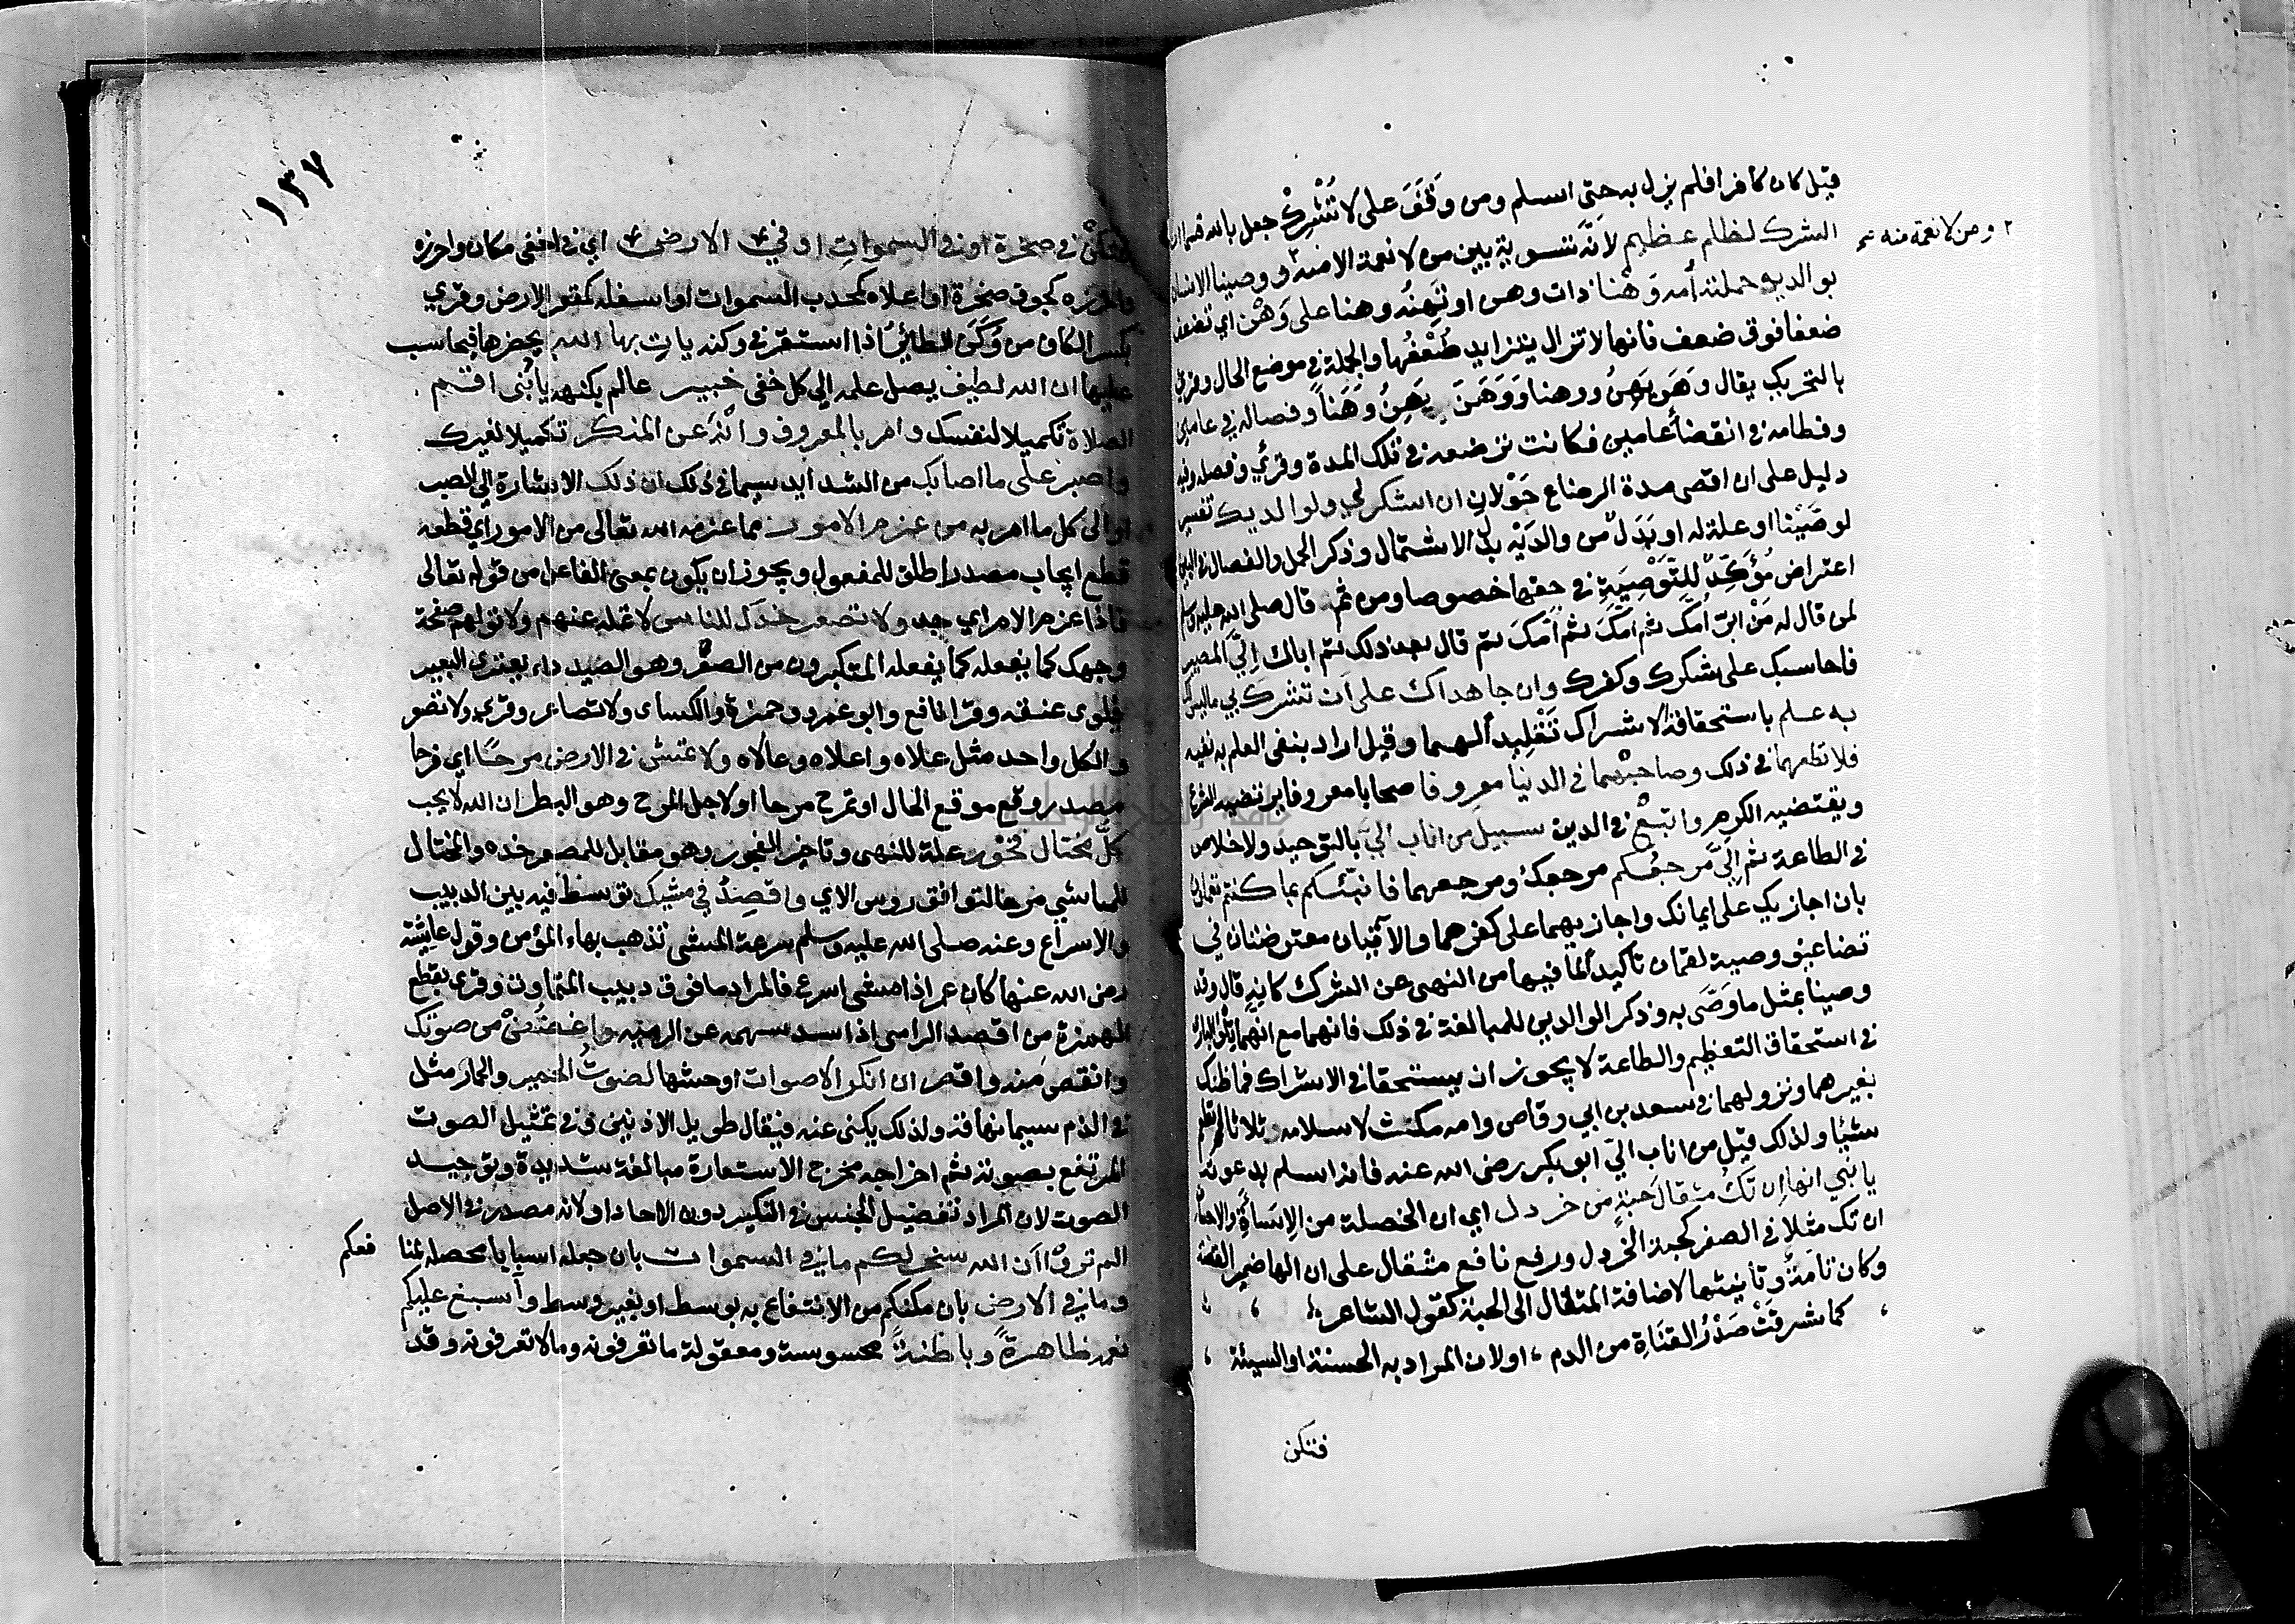 قيل كان كافرا فلم يزل به حتى اسلم ومن وَقَفَ على لا تُشْرِكْ جعل بالله قسما ان
الشرك لظلم عظيم لانَّه تسوية بين من لا نعمة الا منه ووصينا الانسان
٢ ومن لا نعمة منه صح
بوالديه حملته أمه وَهْنا ذات وهن او تَهِنُ وهنا على وَهْن اي تضعف
ضعفا فوق ضعف فانها لا تزال يتزايد ضُعْفُها والجملة في موضع الحال وقرئ
بالتحريك يقال وَهَن يَهِنُ ووهنا وَوَهَنَ يَهِنُ وَهَناً وفصاله في عامين
وفطامه في انقضأ عامين فكانت ترضعه في تلك المدة وقرئ وفصله وفيه
دليل على ان اقصى مدة الرضاع حَوْلان ان اشكر لي ولوالديك تفسير
لوصَّيْنا او علة له او بَدَلٌ من والدَيْه بدل الاشتمال وذكر الحمل والفصال في البين
اعتراض مُؤكِّدٌ للتَّوْصِيَةِ في حقها خصوصا ومن ثم قال صلى الله عليه وسلم
لمن قال له مَنْ ابرّ أمكَ ثم امكَ ثم أمكَ ثم قال بعد ذلك ثم اباك اليَّ المصير
فاحاسبك على شكرك وكفرك وان جاهداك على ان تشرك بي ما ليس لك
به علم باستحقاقه الاشراك تَقْلِيداً لهما وقيل اراد بنفي العلم به نفيه
فلا تطعهما في ذلك وصاحبْهما في الدنيا معروفا صحابا معروفا يرتضيه الشرع
ويقتضيه الكرم واتبعْ في الدين سبيل من اناب اليَّ بالتوحيد والاخلاص
في الطاعة ثم اِليَّ مرجعُكم مرجعك ومرجعهما فانبئكم بما كنتم تعملون
بان اجازيك على ايمانك واجازيهما على كفرهما والآيتان معترضتان في
تضاعيف وصية لقمان تأكيداً لما فيها من النهي عن الشرك كانه قال وقد
وصينا بمثل ما وَصَّى به وذكر الوالدين للمبالغة في ذلك فانهما مع انهما تِلْوُ البارئ
في استحقاق التعظيم والطاعة لا يجوز ان يستحقا في الاشراك فما ظنك
بغيرهما ونزولهما في سعد بن ابي وقاص وامه مكثت لاسلامه ثلاثا لم تطعم
شيئا ولذلك قيل من اناب اليّ ابو بكر رضى الله عنه فانه اسلم بدعوته
يا بني انها ان تكُ مثقالَ حبةٍ من خردل اي ان الخصلة من الاِسَاءَةِ والاحسان
ان تك مثلا في الصغر كحبة الخردل ورفع نافع مثقال على ان الها ضمير القصة
وكان تامة وتأنيثها لاضافة المثقال الى الحبة كقول الشاعر
كما شرقتْ صَدْرُ القناةِ من الدم ، اولان المراد به الحسنة او السيئة ،
فتكن
١٣٧
فتكنْ في صخرة او في السموات او في الارض اي في اخفى مكان واحرزه
كجوف صخرة او اعلاه كمحدب السموات او اسفله كمقعر الارض وقرئ
بكسر الكاف من وُكَنَ الطائرُ اذا استقر في وكنه يات بها الله يحضرها فيحاسب
عليها ان الله لطيف يصل علمه الي كل خفى خبير عالم بكنهه يا بُنى اقم
الصلاة تكميلا لنفسك وامر بالمعروف وانْهَ عن المنكر تكميلا لغيرك
واصبر على ما اصابك من الشدايد سيما في ذلك ان ذلك الاشارة الي الصبر
او الى كل ما امر به من عزم الامور مما عزمه الله تعالى من الامور اي قطعه
قطع ايجاب مصدر اطلق للمفعول ويجوز ان يكون بمعنى الفاعل من قوله تعالى
فاذا عزم الامر اي جد ولا تصعر خدك للناس لا تمله عنهم ولا تولهم صفحة
وجهك كما يفعله كما يفعله المتكبرون من الصعر وهو الصيد داء يعتري البعير
فيلوى عنقه وقرا نافع وابو عمرو وحمزة والكسائ ولا تصاعر وقرئ ولا تصعر
والكل واحد مثل علاه واعلاه وعالاه ولا تمش في الارض مرحًا اي فرحا
مصدر وقع موقع الحال او تمرح مرحا او لاجل المرح وهو البطر ان الله لا يحب
كلَّ مختال فخور علة للنهى وتاخير الفخور وهو مقابل للمصعر خده والمختال
للماشي مرحا لتوافق روس الاي واقصِدْ في مشيك توسط فيه بين الدبيب
والاسراع وعنه صلى الله عليه وسلم سرعة المشى تذهب بهاء المؤمن وقول عايشة
رضى الله عنها كان عمر اذا مشى اسرع فالمراد ما فوق دبيب المتماوت وقرى بقطع
الهمزة من اقصد الرامى اذا سدد سهمه عن الرميه واغضُضْ من صوتك
وانقص منه واقصر ان انكر الاصوات اوحشها لصوتُ الحمير والحمار مثل
في الذم سيما نهاقه ولذلك يكنى عنه فيقال طويل الاذنين وفي تمثيل الصوت
المرتفع بصوته ثم اخراجه مخرج الاستعارة مبالغة شديدة وتوحيد
الصوت لان المراد تفضيل الجنس في النكير دون الاحاد او لانه مصدر في الاصل
الم تروْا ان الله سخر لكم ما في السموات بان جعله اسبابا محصلة لمنا فعكم
وما في الارض بان مكنكم من الانتفاع به بوسط او بغير وسط وأسبغ عليكم
نعمه ظاهرةً وباطنةً محسوسة ومعقولة ما تعرفونه وما لا تعرفونه وقد